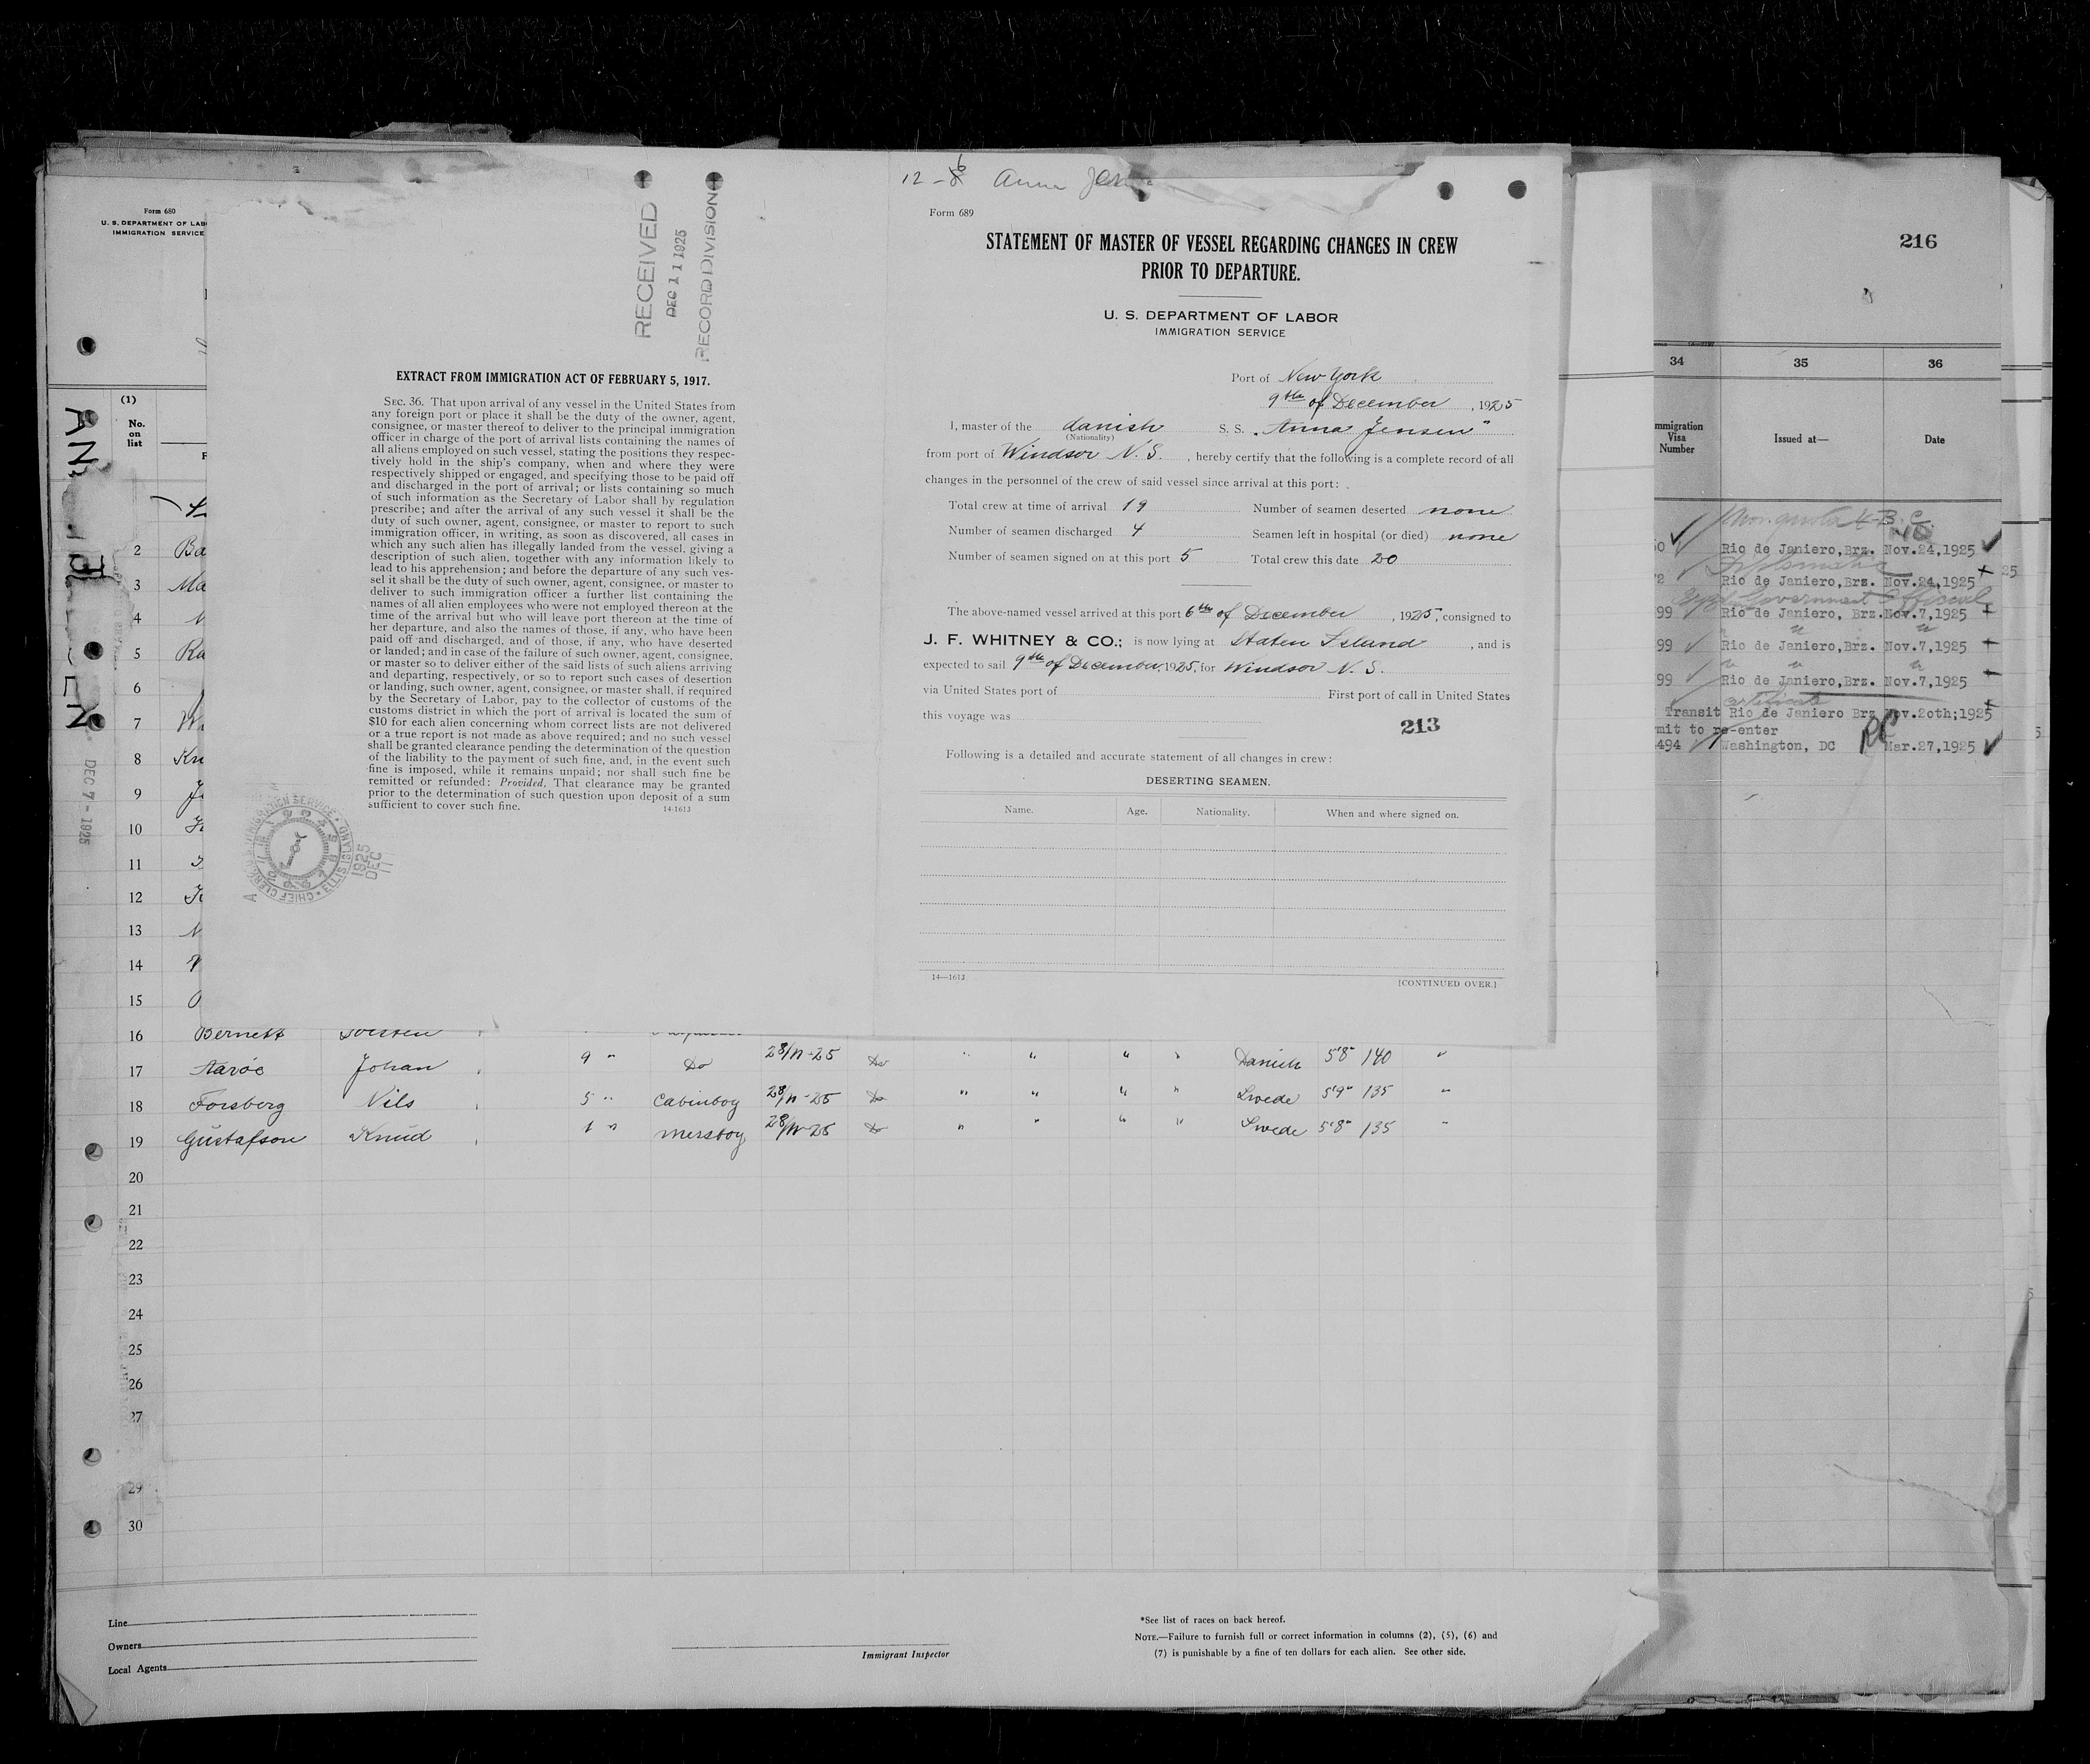 Form 680
U. S. DEPARTMENT OF LAB
IMMIGRATION SERVICE
(1)
No.
on
list
DEC 7 - 1925
RECEIVED
DEC 11 1925
RECORD DIVISION
EXTRACT FROM IMMIGRATION ACT OF FEBRUARY 5, 1917.
SEC. 36. That upon arrival of any vessel in the United States from
any foreign port or place it shall be the duty of the owner, agent,
consignee, or master thereof to deliver to the principal immigration
officer in charge of the port of arrival lists containing the names of
all aliens employed on such vessel, stating the positions they respec-
tively hold in the ship's company, when and where they were
respectively shipped or engaged, and specifying those to be paid off
and discharged in the port of arrival; or lists containing so much
of such information as the Secretary of Labor shall by regulation
prescribe; and after the arrival of any such vessel it shall be the
duty of such owner, agent, consignee, or master to report to such
immigration officer, in writing, as soon as discovered, all cases in
which any such alien has illegally landed from the vessel, giving a
description of such alien, together with any information likely to
lead to his apprehension; and before the departure of any such ves-
sel it shall be the duty of such owner, agent, consignee, or master to
deliver to such immigration officer a further list containing the
names of all alien employees who were not employed thereon at the
time of the arrival but who will leave port thereon at the time of
her departure, and also the names of those, if any, who have been
paid off and discharged, and of those, if any, who have deserted
or landed; and in case of the failure of such owner, agent, consignee,
or master so to deliver either of the said lists of such aliens arriving
and departing, respectively, or so to report such cases of desertion
or landing, such owner, agent, consignee, or master shall, if required
by the Secretary of Labor, pay to the collector of customs of the
customs district in which the port of arrival is located the sum of
$10 for each alien concerning whom correct lists are not delivered
or a true report is not made as above required; and no such vessel
shall be granted clearance pending the determination of the question
of the liability to the payment of such fine, and, in the event such
fine is imposed, while it remains unpaid; nor shall such fine be
remitted or refunded: Provided, That clearance may be granted
prior to the determination of such question upon deposit of a sum
sufficient to cover such fine.
14-1613
IMMIGRATION SERVICE · ELLIS ISLAND · CHIEF CLERK
1925
DEC
11
12-6 Anna Jen
Form 689
STATEMENT OF MASTER OF VESSEL REGARDING CHANGES IN CREW
PRIOR TO DEPARTURE.
U. S. DEPARTMENT OF LABOR
IMMIGRATION SERVICE
Port of New York
9th of December, 1925
I, master of the danish S. S. "Anna Jensen"
(Nationality)
from port of Windsor N. S., hereby certify that the following is a complete record of all
changes in the personnel of the crew of said vessel since arrival at this port:
Total crew at time of arrival 19 Number of seamen deserted none
Number of seamen discharged 4 Seamen left in hospital (or died) none
Number of seamen signed on at this port 5 Total crew this date 20
The above-named vessel arrived at this port 6th of December, 1925, consigned to
J. F. WHITNEY & CO.; is now lying at Staten Island, and is
expected to sail 9th of December, 1925, for Windsor N. S.
via United States port of First port of call in United States
this voyage was
213
Following is a detailed and accurate statement of all changes in crew:
DESERTING SEAMEN.
Name. Age. Nationality. When and where signed on.
14—1613
[CONTINUED OVER.]
216
34 35 36
mmigration
Visa
Number
Issued at—
Date
Rio de Janiero,Brz. Nov.24,1925
Diplomatic
Rio de Janiero,Brz. Nov.24,1925
Government Official
99 Rio de Janiero, Brz. Nov.7,1925
99 Rio de Janiero,Brz. Nov.7,1925
99 Rio de Janiero,Brz. Nov.7,1925
certificate
Transit Rio de Janiero Brz Nov.2oth;1925
mit to re-enter
494 Washington, DC Mar.27,1925
2 Ba
3 Ma
4
5 Ra
6
7
8 Kn
9
10
11
12
13
14
15
16 Bernett Torsten
17 Aaröe Johan 9 " Do 28/11-25 Do " " " " Danish 5'8" 140 "
18 Forsberg Nils 5 " Cabinboy 28/11-25 Do " " " " Swede 5'9" 135 "
19 Gustafson Knud 1 " Messboy 28/11-25 Do " " " " Swede 5'8" 135 "
20
21
22
23
24
25
26
27
29
30
Line
Owners
Local Agents
Immigrant Inspector
*See list of races on back hereof.
NOTE.—Failure to furnish full or correct information in columns (2), (5), (6) and
(7) is punishable by a fine of ten dollars for each alien. See other side.